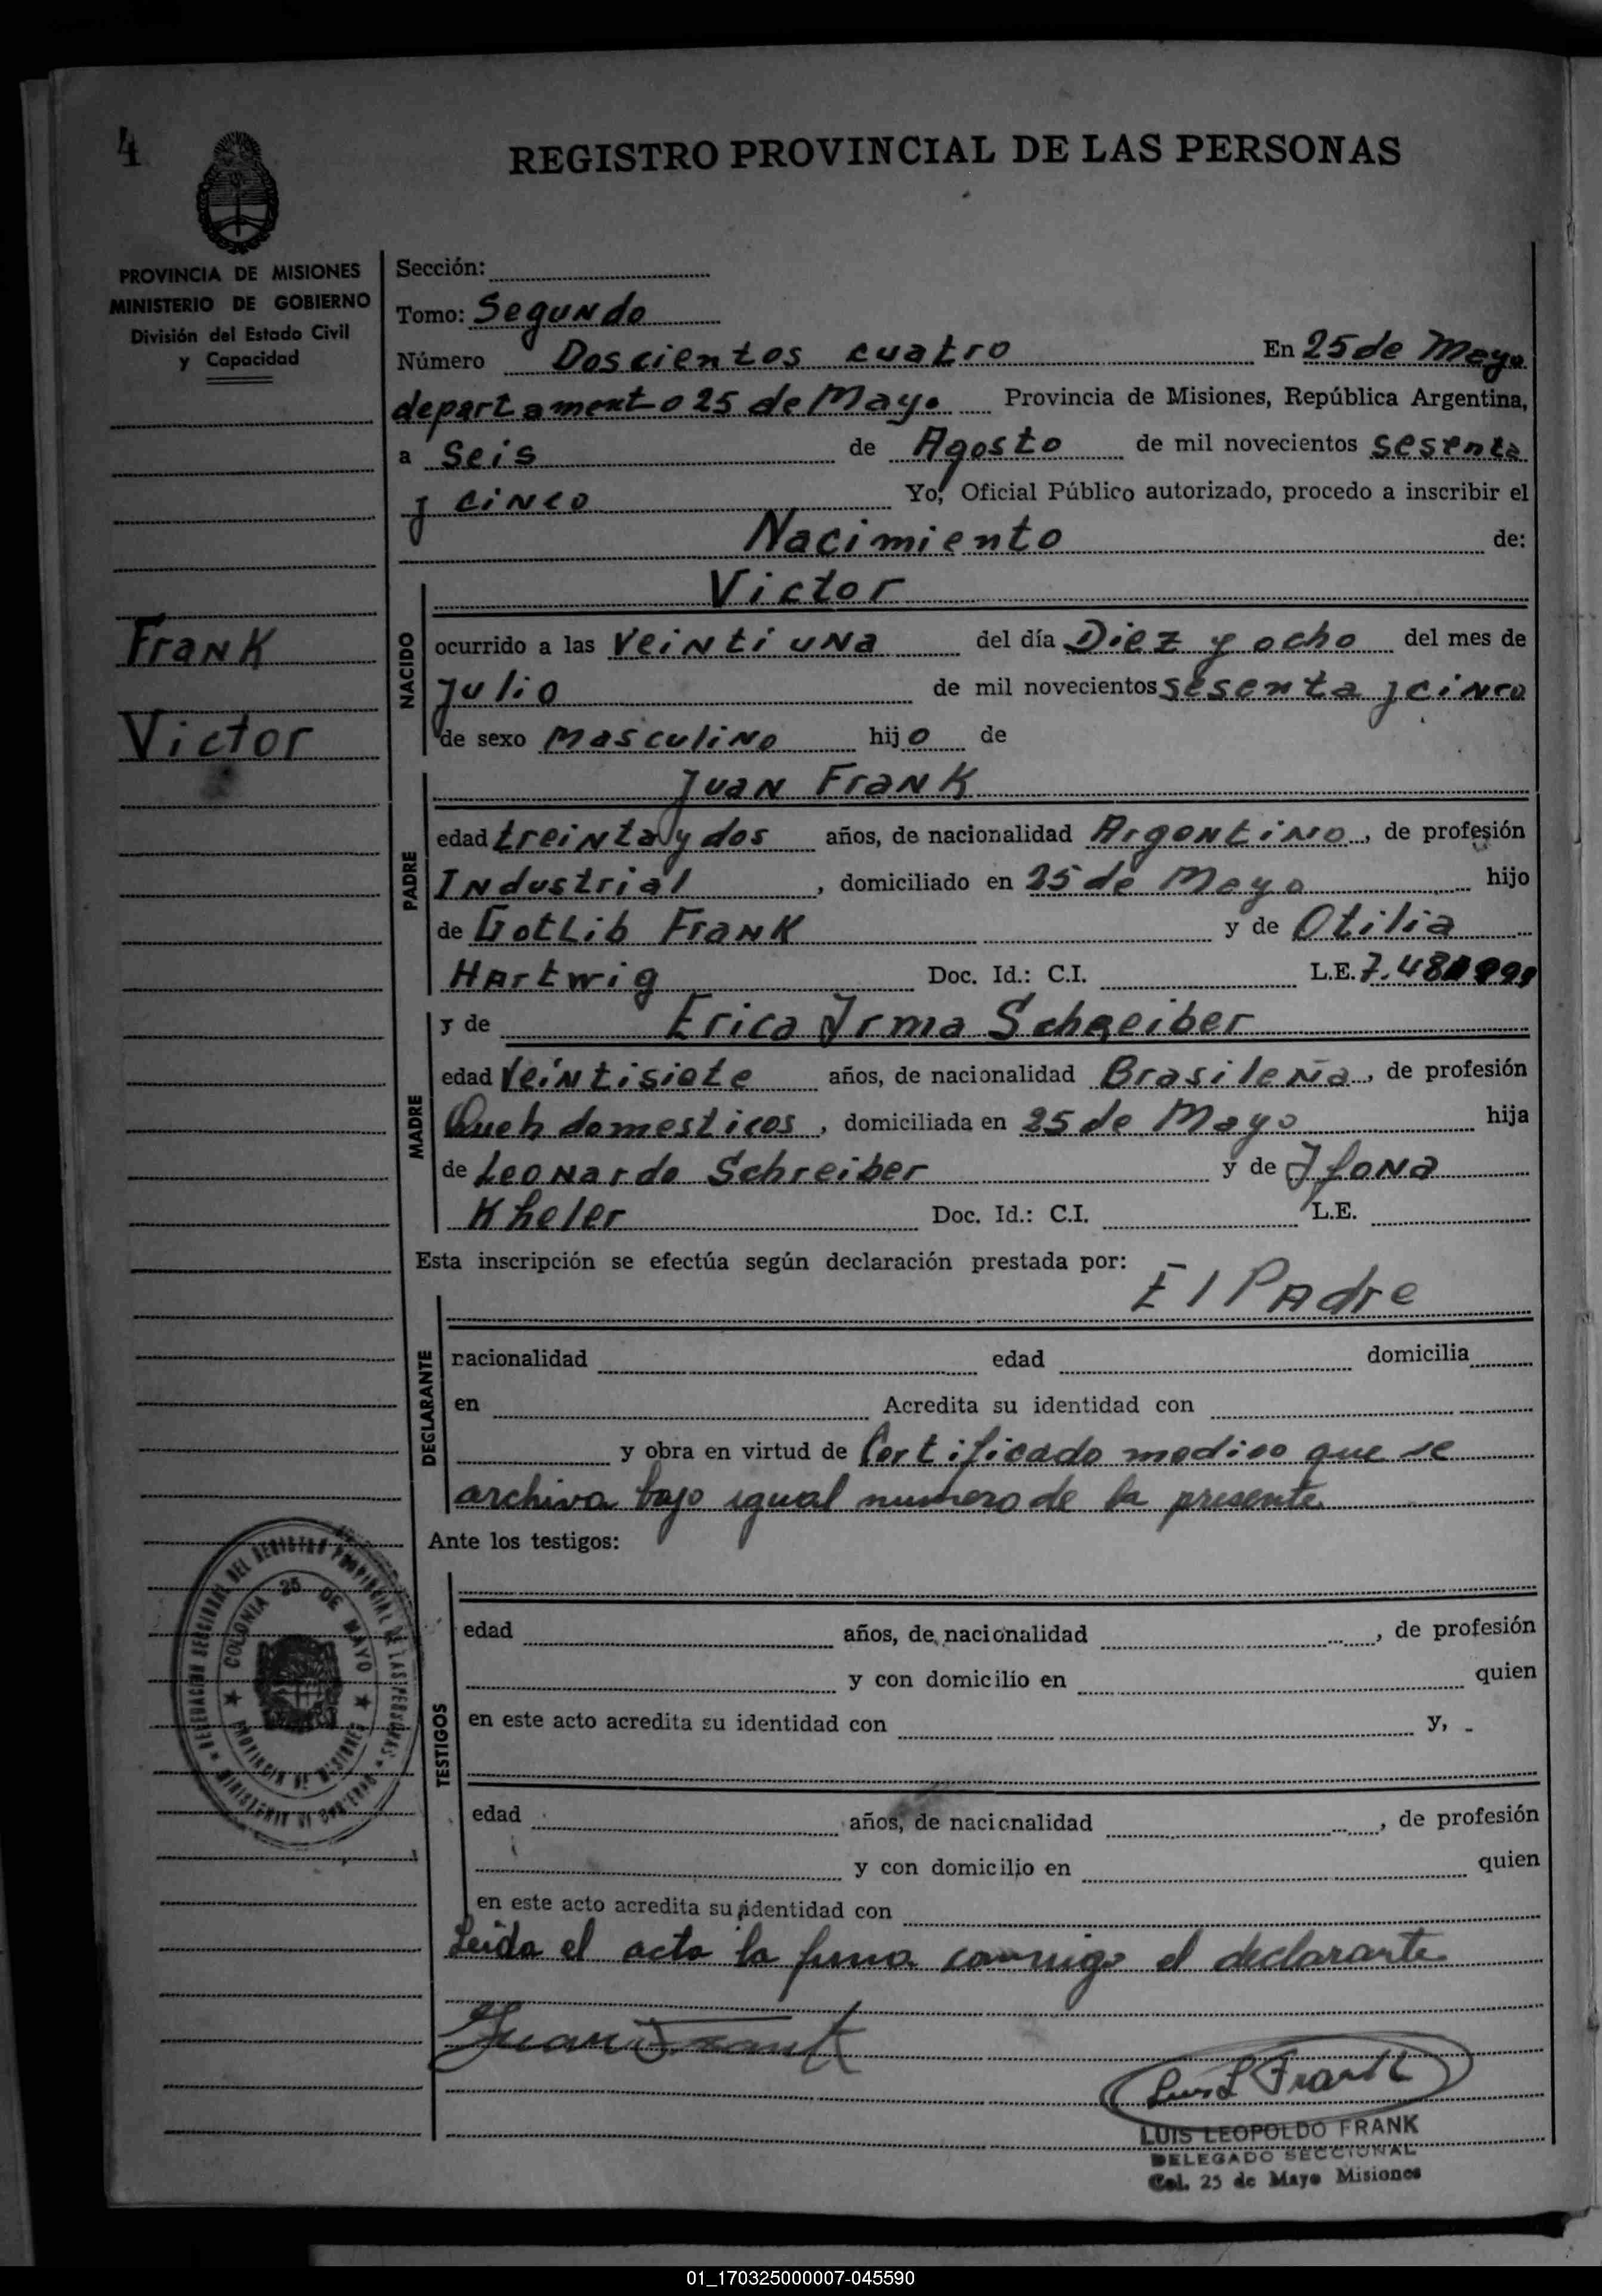 4
REGISTRO PROVINCIAL DE LAS PERSONAS
PROVINCIA DE MISIONES
MINISTERIO DE GOBIERNO
División del Estado Civil
y Capacidad
Frank
Victor
Sección:
Tomo: Segundo
Número Doscientos cuatro En 25 de Mayo
departamento 25 de Mayo Provincia de Misiones, República Argentina,
a Seis de Agosto de mil novecientos sesenta
y cinco Yo, Oficial Público autorizado, procedo a inscribir el
Nacimiento de:
NACIDO
Victor
ocurrido a las veinti una del día Diez y ocho del mes de
Julio de mil novecientos sesenta y cinco
de sexo masculino hijo de
PADRE
Juan Frank
edad treinta y dos años, de nacionalidad Argentino, de profesión
Industrial, domiciliado en 25 de Mayo hijo
de Gotlib Frank y de Otilia
Hartwig Doc. Id.: C.I. L.E.
MADRE
y de Erica Irma Schreiber
edad veintisiete años, de nacionalidad Brasileña, de profesión
Queh domesticos, domiciliada en 25 de Mayo hija
de Leonardo Schreiber y de Ilona
Kheler Doc. Id.: C.I. L.E.
Esta inscripción se efectúa según declaración prestada por:
El Padre
DECLARANTE
nacionalidad edad domicilia
en Acredita su identidad con
y obra en virtud de Certificado medico que se
archiva bajo igual numero de la presente
Ante los testigos:
TESTIGOS
edad años, de nacionalidad , de profesión
y con domicilio en quien
en este acto acredita su identidad con y,
edad años, de nacionalidad , de profesión
y con domicilio en quien
en este acto acredita su identidad con
Leida el acta la firma conmigo el declarante
Juan Frank
Luis L Frank
LUIS LEOPOLDO FRANK
DELEGADO SECCIONAL
Col. 25 de Mayo Misiones
DELEGACION SECCIONAL DEL REGISTRO PROVINCIAL DE LAS PERSONAS
MINISTERIO DE GOBIERNO
COLONIA 25 DE MAYO
PROVINCIA DE MISIONES
01_170325000007-045590